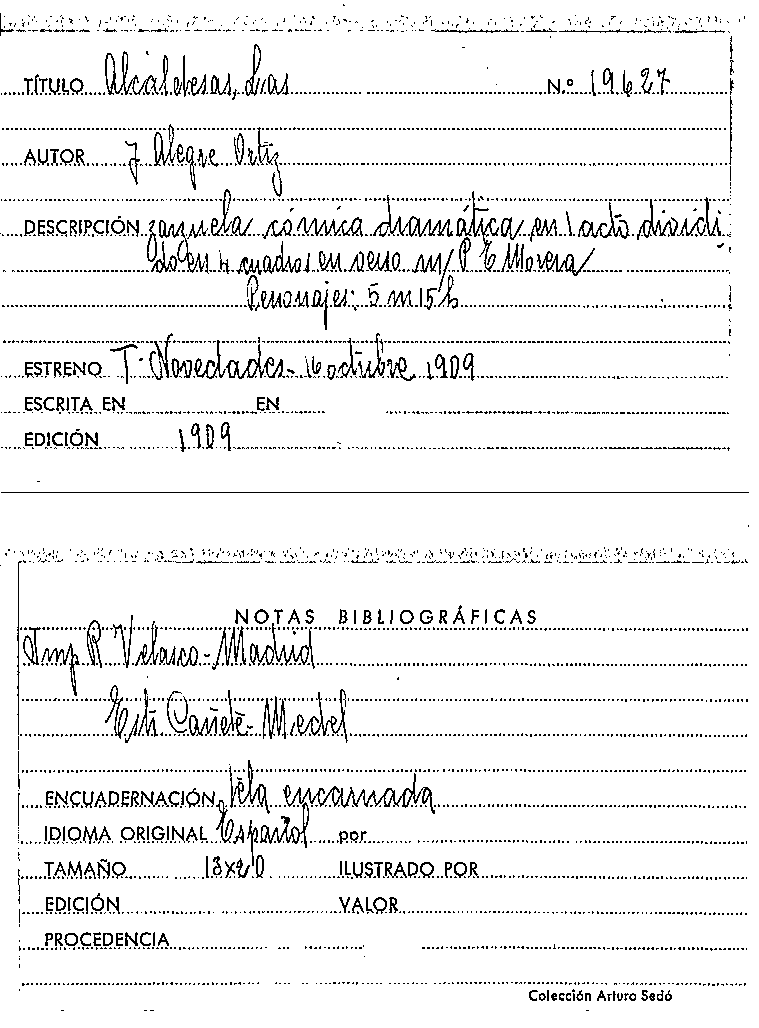 TÍTULO Alcaldesas, Las N.º 19627
AUTOR J Alegre Ortiz
DESCRIPCIÓN zarzuela cómica dramática en 1 acto dividi
do en 4 cuadros en verso m/ P E Morera
Personajes: 5 m 15 h
ESTRENO T. Novedades - 16 octubre 1909
ESCRITA EN EN
EDICIÓN 1909
NOTAS BIBLIOGRÁFICAS
Imp R Velasco - Madrid
Cañete - Medel
ENCUADERNACIÓN tela encarnada
IDIOMA ORIGINAL Español por
TAMAÑO 13x20 ILUSTRADO POR
EDICIÓN VALOR
PROCEDENCIA
Colección Arturo Sedó